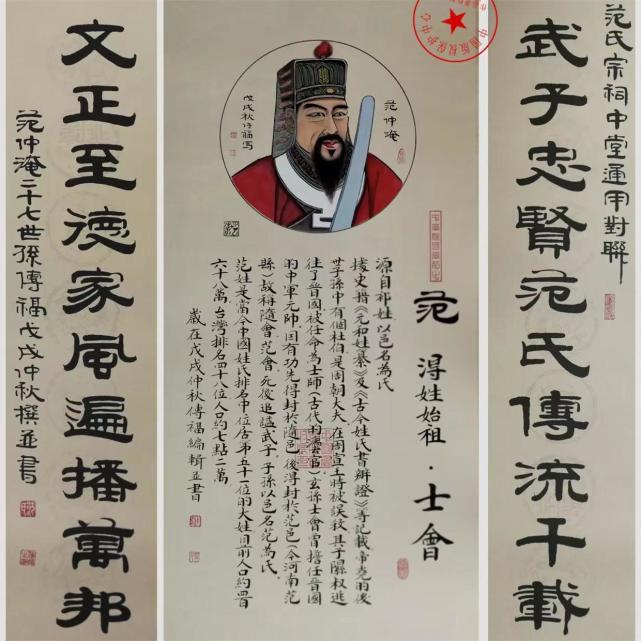 范氏宗祠中堂通用對聯
武子忠賢范氏傳流千載
范仲淹
戊戌秋傳福寫
范 得姓始祖·士會
源自祁姓以邑名為氏
據史措《元和姓纂》及《古今姓氏書辯證》等記載帝堯的後
世子孫中有個杜伯是周朝大夫在周宣王時被誤殺其子隰叔逃
往了晉國被任命為士師(古代的灋官)玄孫士會曾擔任晉國
的中軍元帥因有功先得封於隨邑後得封於范邑(今河南范
縣)故稱隨會范會死後追謚武子子孫以邑名范為氏
范姓是當今中國姓氏排名中位居第五十一位的大姓目前人口約四百
六十八萬台灣排名四十八位人口約七點二萬
歲在戊戌仲秋傳福編輯並書
文正至德家風遍播萬邦
范仲淹二十七世孫傳福戊戌仲秋撰並書